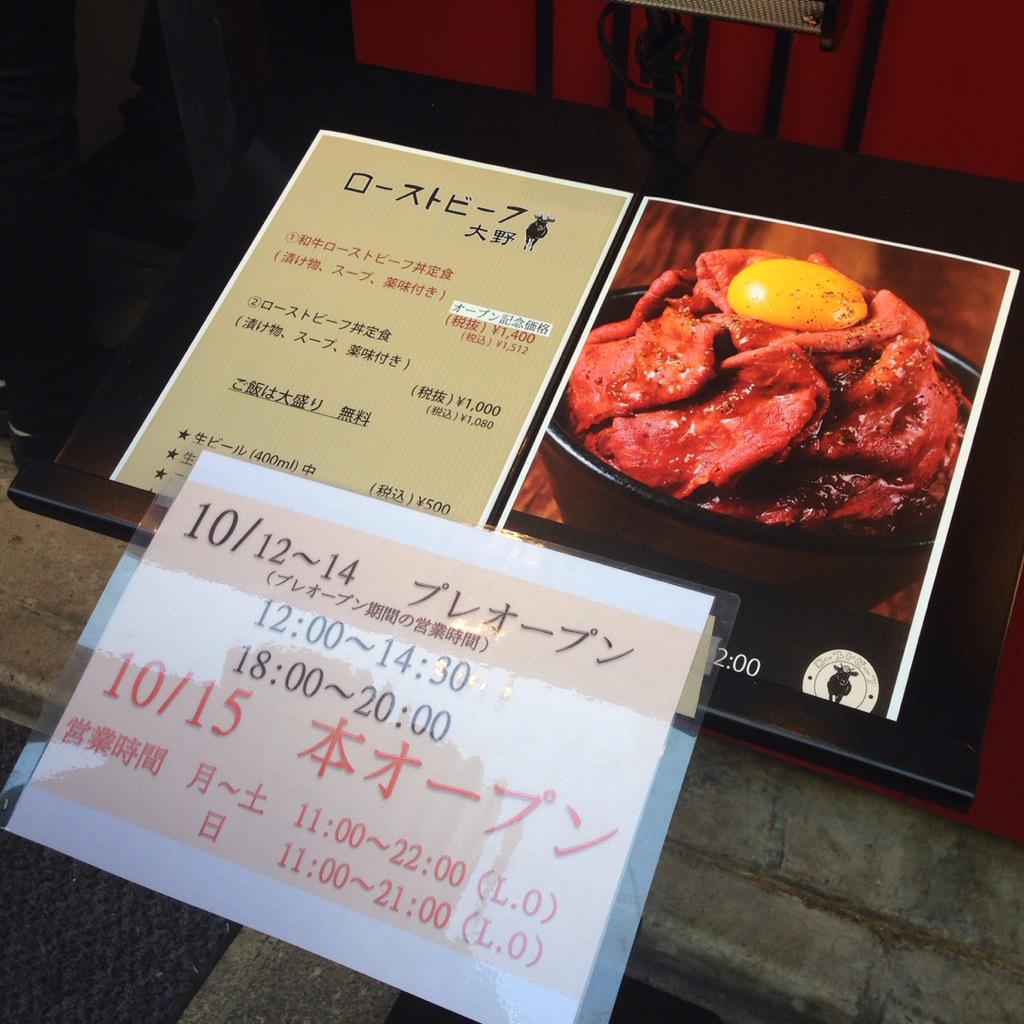 ローストビーフ
大野
①和牛ローストビーフ丼定食
(漬け物、スープ、薬味付き)
オープン記念価格
(税抜)¥1,400
(税込)¥1,512
②ローストビーフ丼定食
(漬け物、スープ、薬味付き)
(税抜)¥1,000
(税込)¥1,080
ご飯は大盛り 無料
★生ビール(400ml)中
(税込)¥500
★生
2:00
ローストビーフ
10/12〜14 プレオープン
(プレオープン期間の営業時間)
12:00〜14:30
18:00〜20:00
10/15 本オープン
営業時間 月〜土 11:00〜22:00(L.O)
日 11:00〜21:00(L.O)